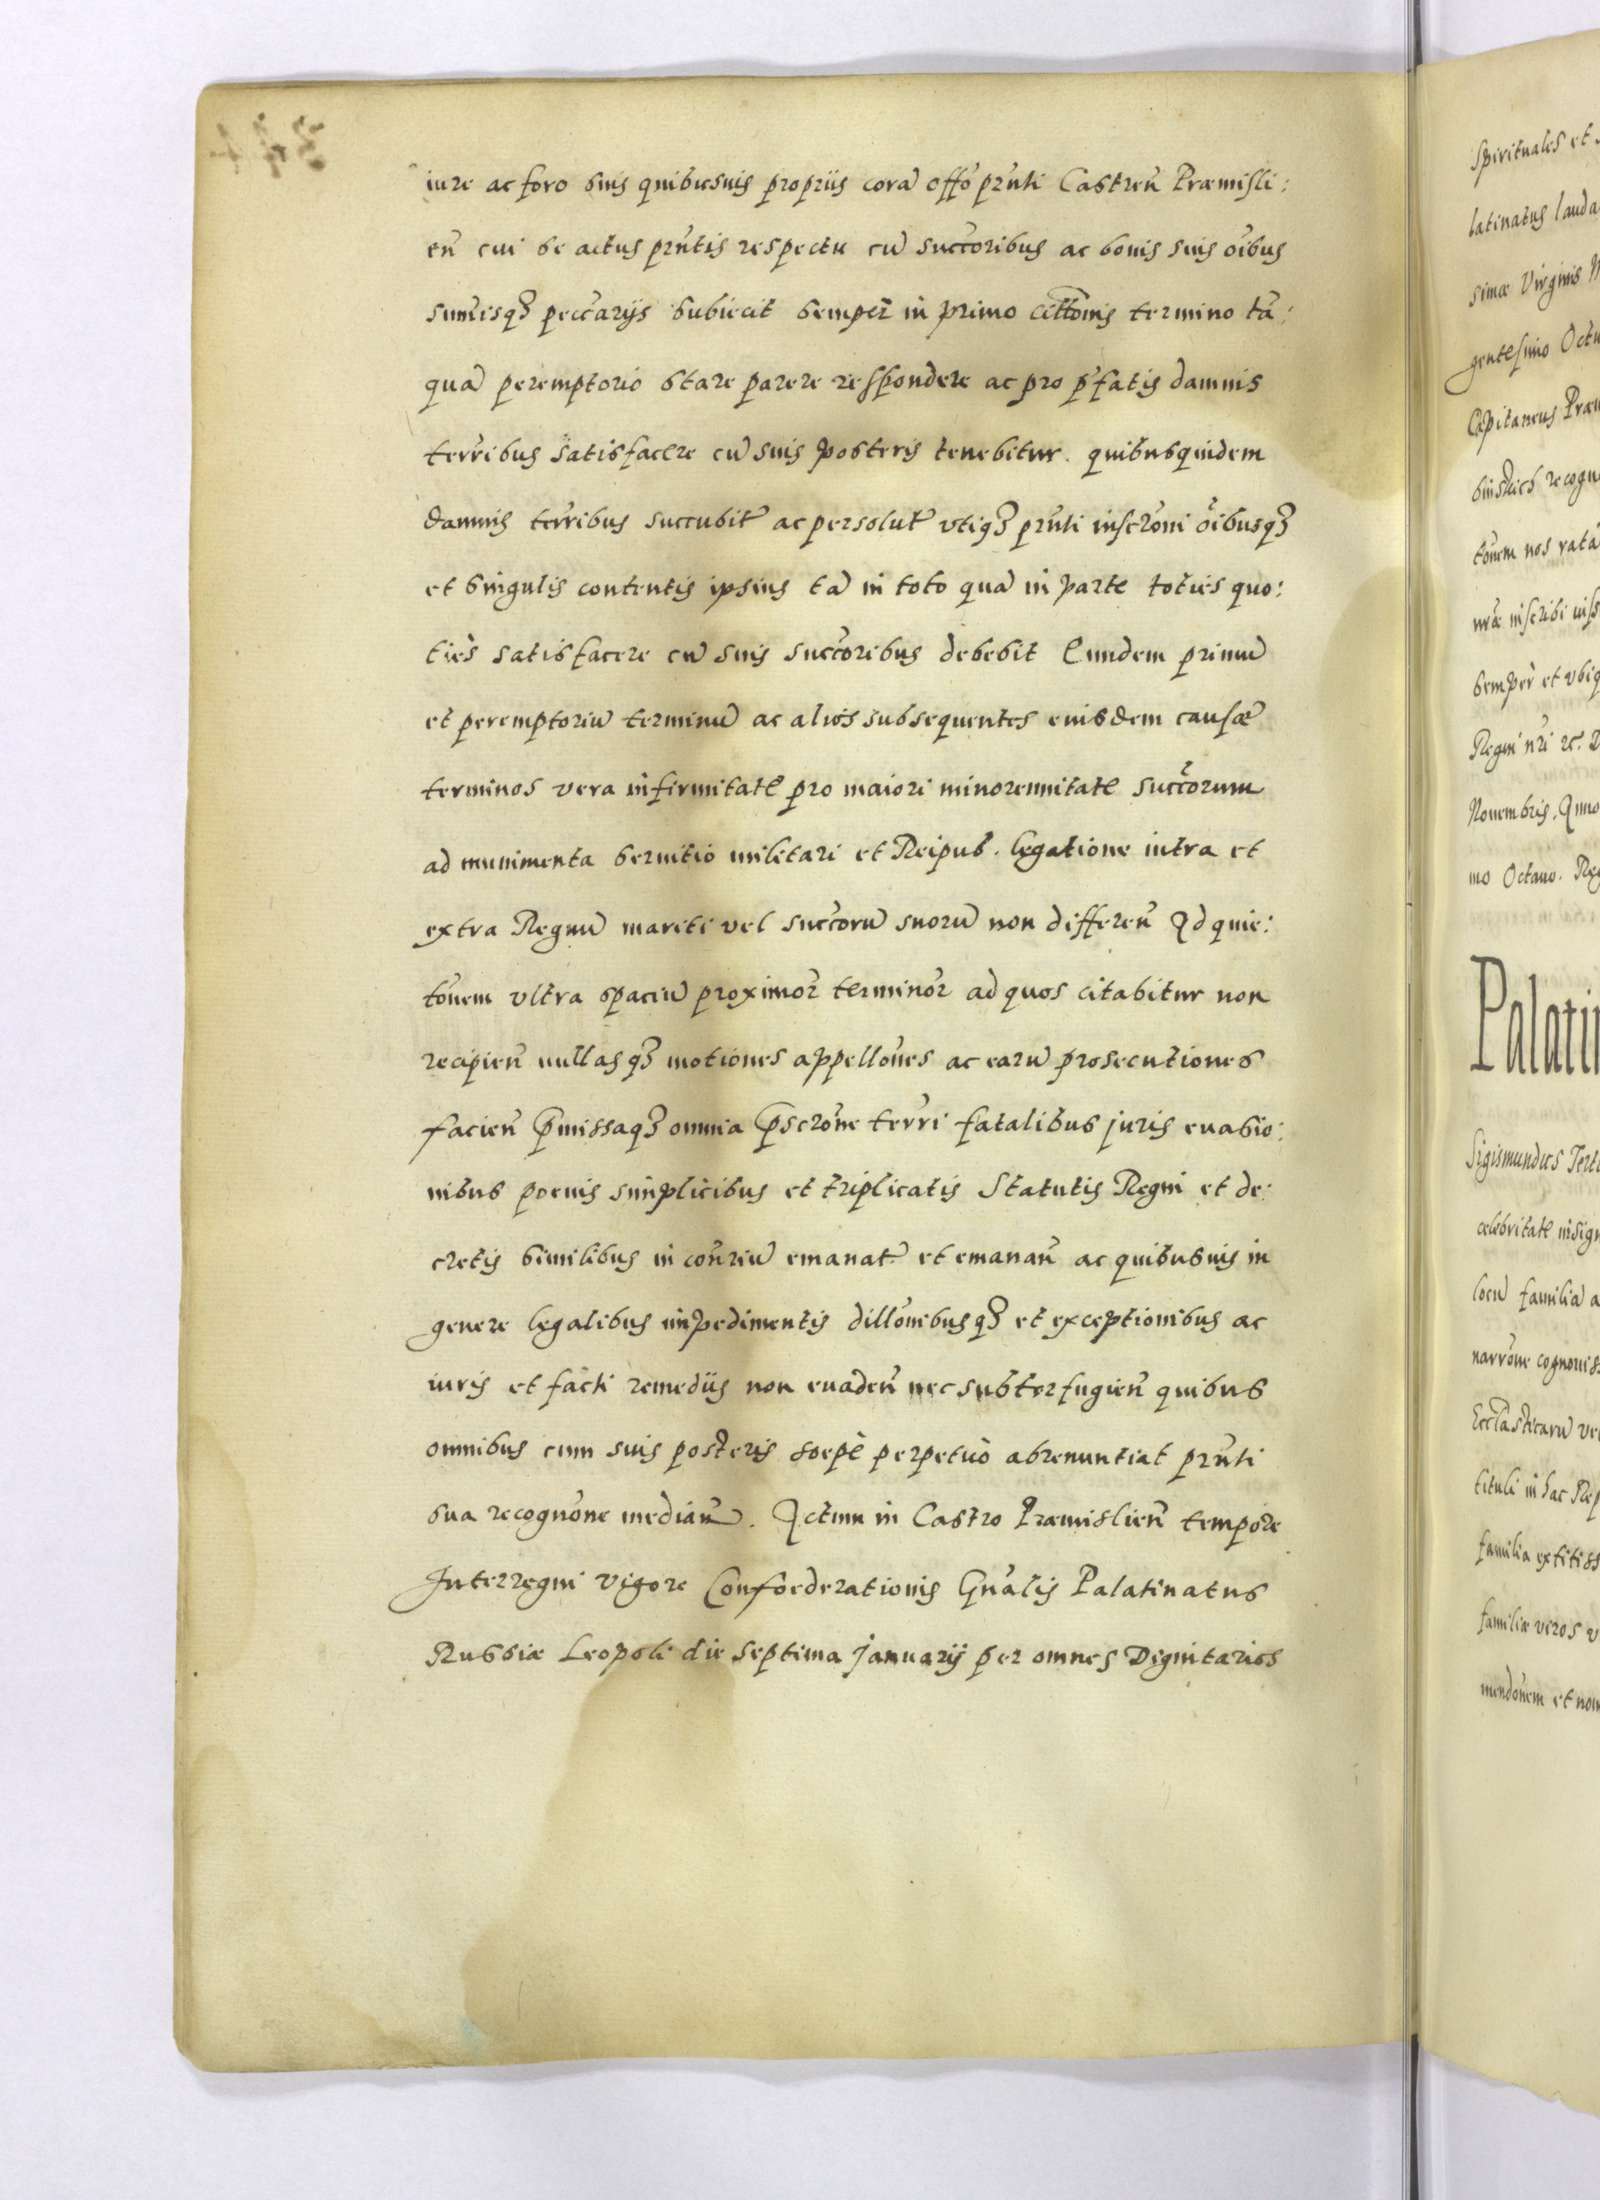 iure ac foro suis quibusuis proprijs corã offõ prñti Castreñ Præmisli:
eñ cui se actus prñtis respectu cũ succoribus ac bonis suis oĩbus
sumisq3 peccarijs subiecit semper in primo cittonis termino tã:
quã peremptorio stare parere respondere ac pro p̃fatis damnis
terribus satisfacere cũ suis posteris tenebitur. quibusquidem
damnis terribus succubit̃ ac persolut̃ vtiq3 prñti inscrõni oĩbusq3
et singulis contentis ipsius tã in toto quã in parte toties quo:
ties satisfacere cũ suis succoribus debebit Eundem primũ
et peremptoriũ terminũ ac alios subsequentes eiusdem causæ
terminos vera infirmitate pro maiori minorennitate succorum
ad munimenta seruitio militari et Reipub. legatione intra et
extra Regnũ mariti vel succorũ suorũ non differeñ Ad quie:
tõnem vltra spaciũ proximor̃ terminor̃ ad quos citabitur non
recipieñ nullasq3 motiones appellõnes ac earũ prosecutiones
facieñ p̃missaq3 omnia p̃scrõne terri fatalibus juris euasio:
nibus poenis simplicibus et triplicatis Statutis Regni et de:
cretis similibus in conr̃riũ emanat̃ et emanañ ac quibusuis in
genere legalibus impedimentis dillõnibusq3 et exceptionibus ac
iuris et facti remedijs non euadeñ nec subterfugieñ quibus
omnibus cum suis posteris soepè perpetuò abrenuntiat prñti
sua recognõne mediañ. Actum in Castro Præmislieñ tempore
Interregni vigore Confoederationis Gñalis Palatinatus
Russiæ Leopoli die septima Januarij per omnes Dignitarios
spirituales et
latinatus lauda
simæ Virginis
gentesimo Octu
Capitaneus
tõnem nos ratã
semper et vbiq
Regni nri
Nouembris. Anno
mo Octauo.
Palati
Sigismundus Terti
celebritate insign
locũ familiã a
narrõne cognouiss
tituli in hac Rep
familia extitiss
familiæ veros v